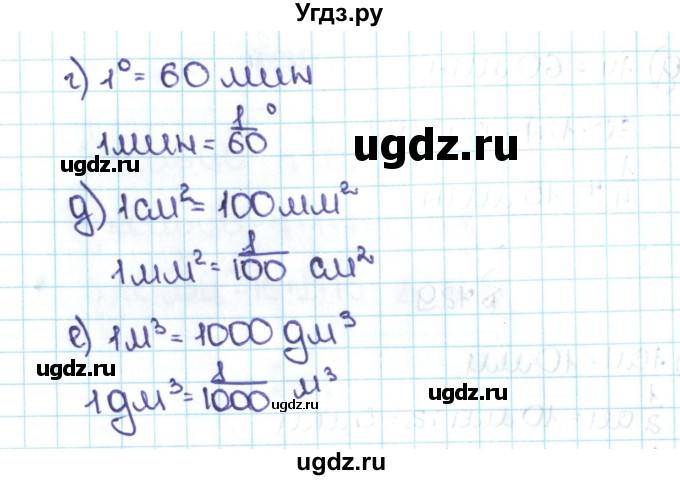 Угдз.ру
г) 1° = 60 мин
1 мин = 1/60°
ugdz.ru
ugdz.ru
д) 1 см² = 100 мм²
1 мм² = 1/100 см²
е) 1 м³ = 1000 дм³
ugdz.ru
1 дм³ = 1/1000 м³
ugdz.ru
ugdz.ru
ugdz.ru